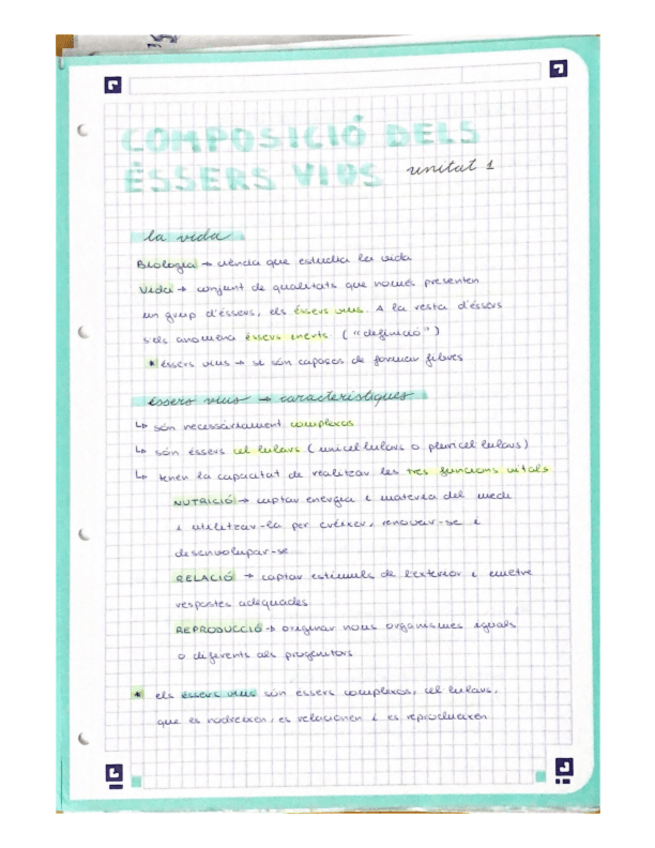 COMPOSICIÓ DELS
ÉSSERS VIUS unitat 1
la vida
Biologia → ciència que estudia la vida
Vida → conjunt de qualitats que només presenten
un grup d'éssers, els éssers vius. A la resta d'éssers
se'ls anomena éssers inerts. ("definició")
* éssers vius → se són capaços de formar fibres
éssers vius → característiques
↳ són necessàriament complexos
↳ són éssers cel·lulars (unicel·lulars o pluricel·lulars)
↳ tenen la capacitat de realitzar les tres funcions vitals
NUTRICIÓ → captar energia i matèria del medi
i utilitzar-la per créixer, renovar-se i
desenvolupar-se
RELACIÓ → captar estímuls de l'exterior i emetre
respostes adequades
REPRODUCCIÓ → originar nous organismes iguals
o diferents als progenitors
* els éssers vius són éssers complexos, cel·lulars,
que es nodreixen, es relacionen i es reprodueixen